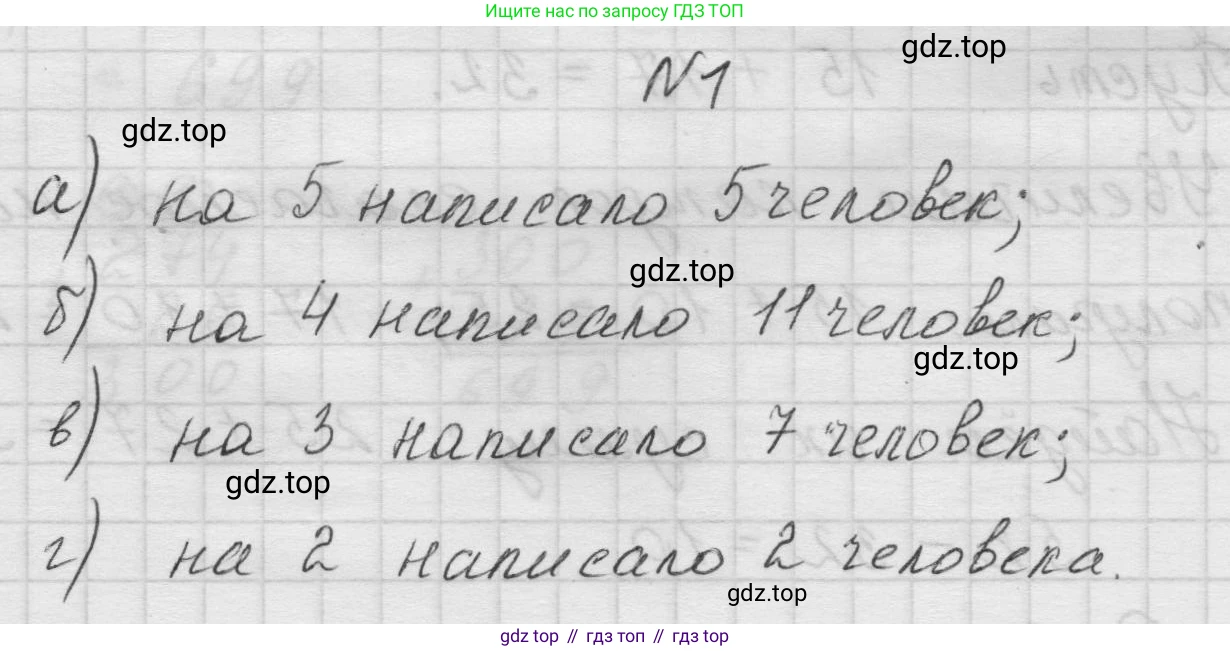 Ищите нас по запросу ГДЗ ТОП
gdz.top
N1
gdz.top
а) на 5 написало 5 человек;
gdz.top
б) на 4 написало 11 человек;
gdz.top
в) на 3 написало 7 человек;
gdz.top
г) на 2 написало 2 человека.
gdz.top
gdz top // гдз топ // гдз top